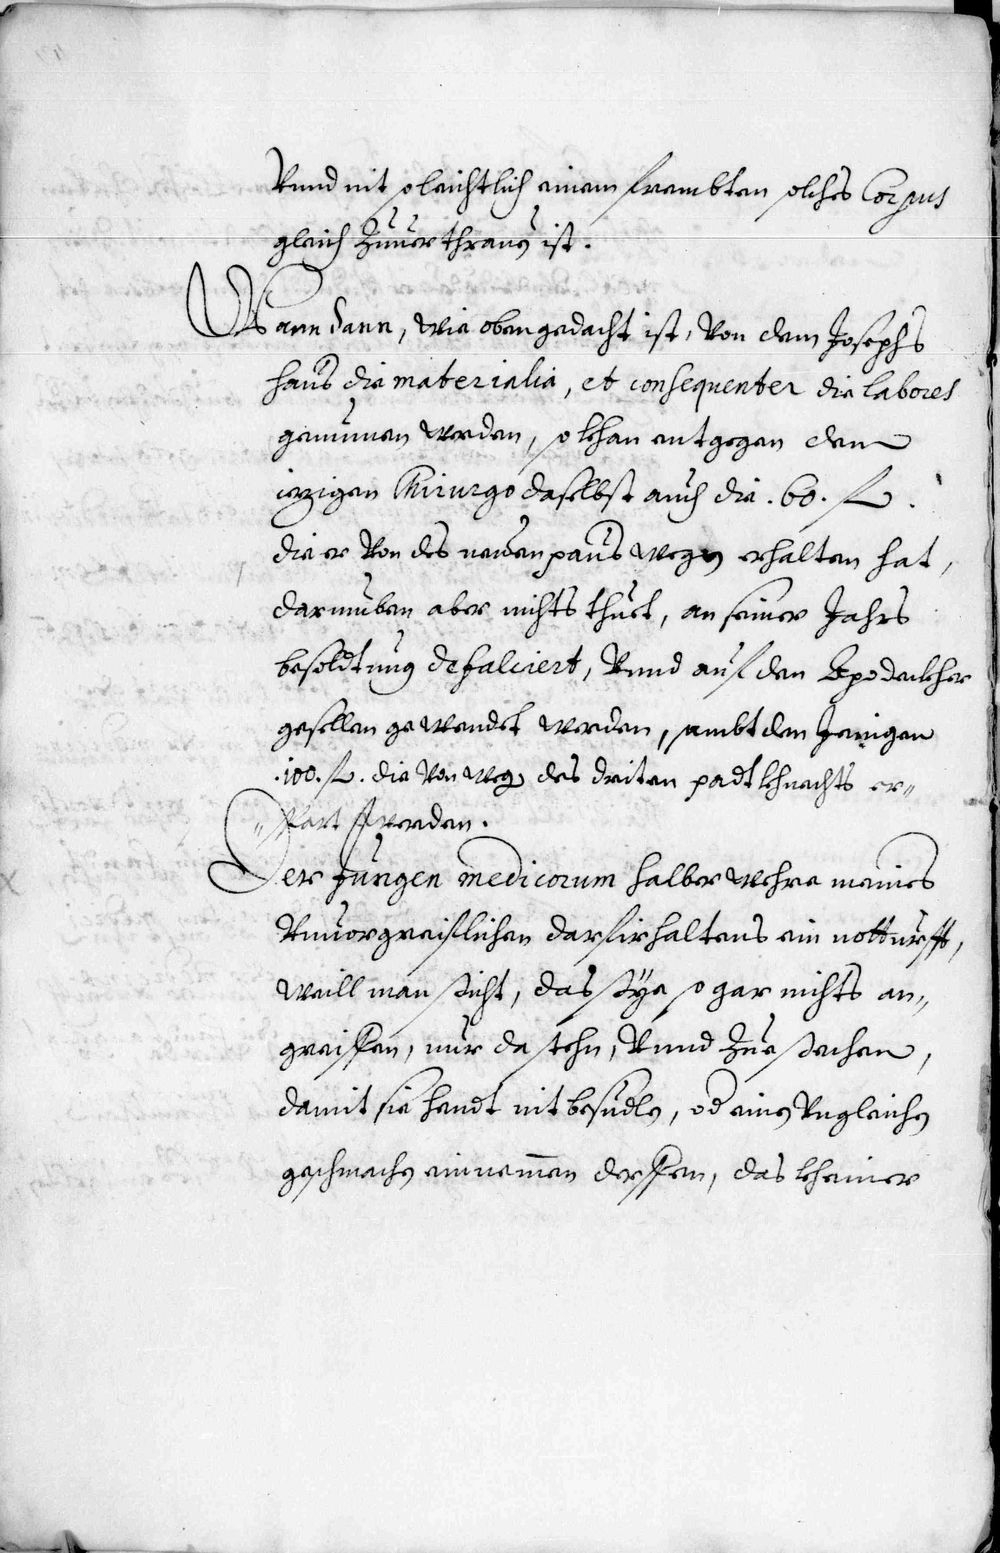 Vnnd nit so leichtlich einem frembten solches Corpus
gleich Zuuerthrauen ist.
Wann dann, wie oben gedacht ist, von dem Josephs
haus die materialia, et consequenter die labores
genummen werden, so khan entgegen dem
iezigen Chirurgo daselbst auch die .60. fl.
die er von des neuen paus wegen erhalten hat,
darumben aber nichts thuet, an seiner Jahrs
besoldtung defalciert, Vnnd auf den Apodeckher
gesellen gewendet werden, sambt den Jenigen
.100. fl. die von weg des driten padtkhnechts er„
„spart werden.
Der Jungen medicorum halber wehre meines
Vnuorgreiflichen darfirhaltens ein notturfft,
weill man sicht, das sÿe so gar nichts an„
greiffen, nur da stehn, Vnnd Zue sechen,
damit sie hendt nit besudlen, od einen Vngleichen
geschmachen einnemen derffen, das kheiner